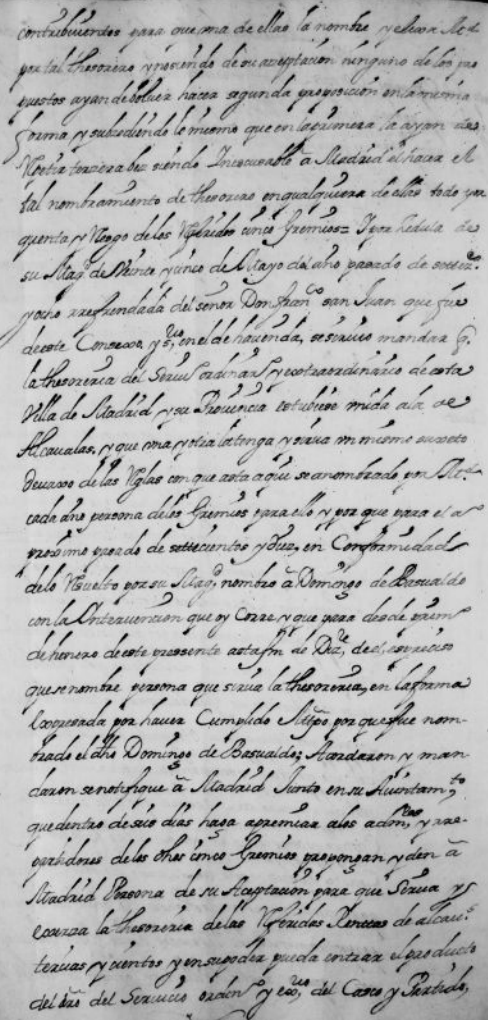 contribuientes para que una de ellas la nombre y elixa Md
por tal thesorero y no siendo de su azeptacion ninguno de los pro
puestos ayan de bolver hacer segunda proposicion en la misma
forma, y subzediendo lo mismo que en la primera la ayan de
repetir terzera bez siendo Inescusable â Madrid el hacer el
tal nombramiento de thesorero en qualquiera de ellas todo por
quenta y Riesgo de los Referidos cinco Gremios = Y por zedula de
su Magd de Veinte y cinco de Mayo del año pasado de setteztos
y ocho rrefrendada del señor Don franco san Juan que fue
de este Consexo, y srio, en el de hacienda, se sirvio mandar q.
la thesoreria del Servio ordinario y extraordinario de esta
Villa de Madrid y su Provincia estubiese unida a la de
Alcavalas, y que una y otra la tenga y sirva un mismo suxeto
devaxo de las Reglas con que asta aqui se a nombrado por Md
cada año persona de los Gremios para ello y por que para el a
proximo pasado de settecientos y diez, en Conformedad
de lo Resuelto por su Magd, nombro â Domingo de Basualdo
con la Intervencion que oy Corre, y que para desde primo
de henero de este pressente asta fin de Dize, de el es preciso
que se nombre persona que sirva la thesoreria, en la forma
expresada por haver Cumplido el tpo por que fue nom-
brado el dho Domingo de Basualdo; Acordaron y man-
daron se notifique â Madrid Junto en su Ayuntamto,
que dentro de seis dias haga apremiar a los admres, y rre-
partidores de los dhos cinco Gremios propongan y den â
Madrid Persona de su Aceptacion para que Sirva y
exerza la thesoreria de las Referidas Rentas de alcavs
terzias y cientos y en su poder pueda entrar el producto
del dro del Servicio ordino y exrio, del Casco y Partido,